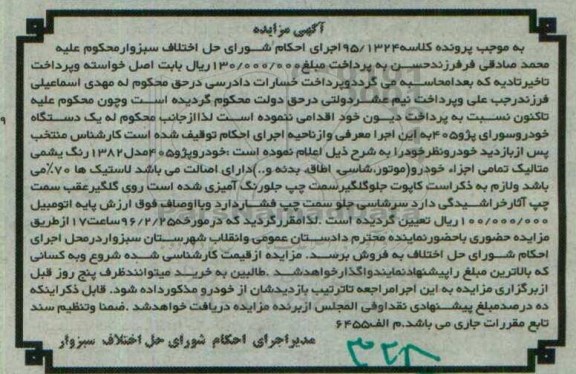 آگهی مزایده
به موجب پرونده کلاسه۹۵/۱۳۲۴اجرای احکام شورای حل اختلاف سبزوارمحکوم علیه
محمد صادقی فرفرزندحسن به پرداخت مبلغ۱۳۰/۰۰۰/۰۰۰ریال بابت اصل خواسته وپرداخت
تاخیرتادیه که بعدامحاسبه می گرددوپرداخت خسارات دادرسی درحق محکوم له مهدی اسماعیلی
فرزندرجب علی وپرداخت نیم عشردولتی درحق دولت محکوم گردیده است وچون محکوم علیه
تاکنون نسبت به پرداخت دیون خود اقدامی ننموده است لذاازجانب محکوم له یک دستگاه
خودروسواری پژو۴۰۵به این اجرا معرفی وازناحیه اجرای احکام توقیف شده است کارشناس منتخب
پس ازبازدید خودرونظرخودرا به شرح ذیل اعلام نموده است :خودروپژو۴۰۵مدل۱۳۸۲رنگ یشمی
متالیک تمامی اجزاء خودرو(موتور،شاسی، اطاق، بدنه و..)دارای اصالت می باشد لاستیک ها ۷۰٪می
باشد ولازم به ذکراست کاپوت جلوگلگیرسمت چپ جلورنگ آمیزی شده است روی گلگیرعقب سمت
چپ آثارخراشیدگی دارد سرشاسی جلو سمت چپ فشاردارد وبااوصاف فوق ارزش پایه اتومبیل
۱۰۰/۰۰۰/۰۰۰ ریال تعیین گردیده است .لذامقررگردید که درمورخه۹۶/۲/۲۵ساعت۱۷ ازطریق
مزایده حضوری باحضورنماینده محترم دادستان عمومی وانقلاب شهرستان سبزواردرمحل اجرای
احکام شورای حل اختلاف به فروش برسد. مزایده ازقیمت کارشناسی شده شروع وبه کسانی
که بالاترین مبلغ راپیشنهادنمایندواگذارخواهدشد .طالبین به خرید میتوانندظرف پنج روز قبل
ازبرگزاری مزایده به این اجرامراجعه تاترتیب بازدیدشان از خودرو مذکورداده شود. قابل ذکراینکه
ده درصدمبلغ پیشنهادی نقداوفی المجلس ازبرنده مزایده دریافت خواهدشد .ضمنا وتنظیم سند
تابع مقررات جاری می باشد.م الف۶۴۵۵
مدیراجرای احکام شورای حل اختلاف سبزوار
۳۲۸